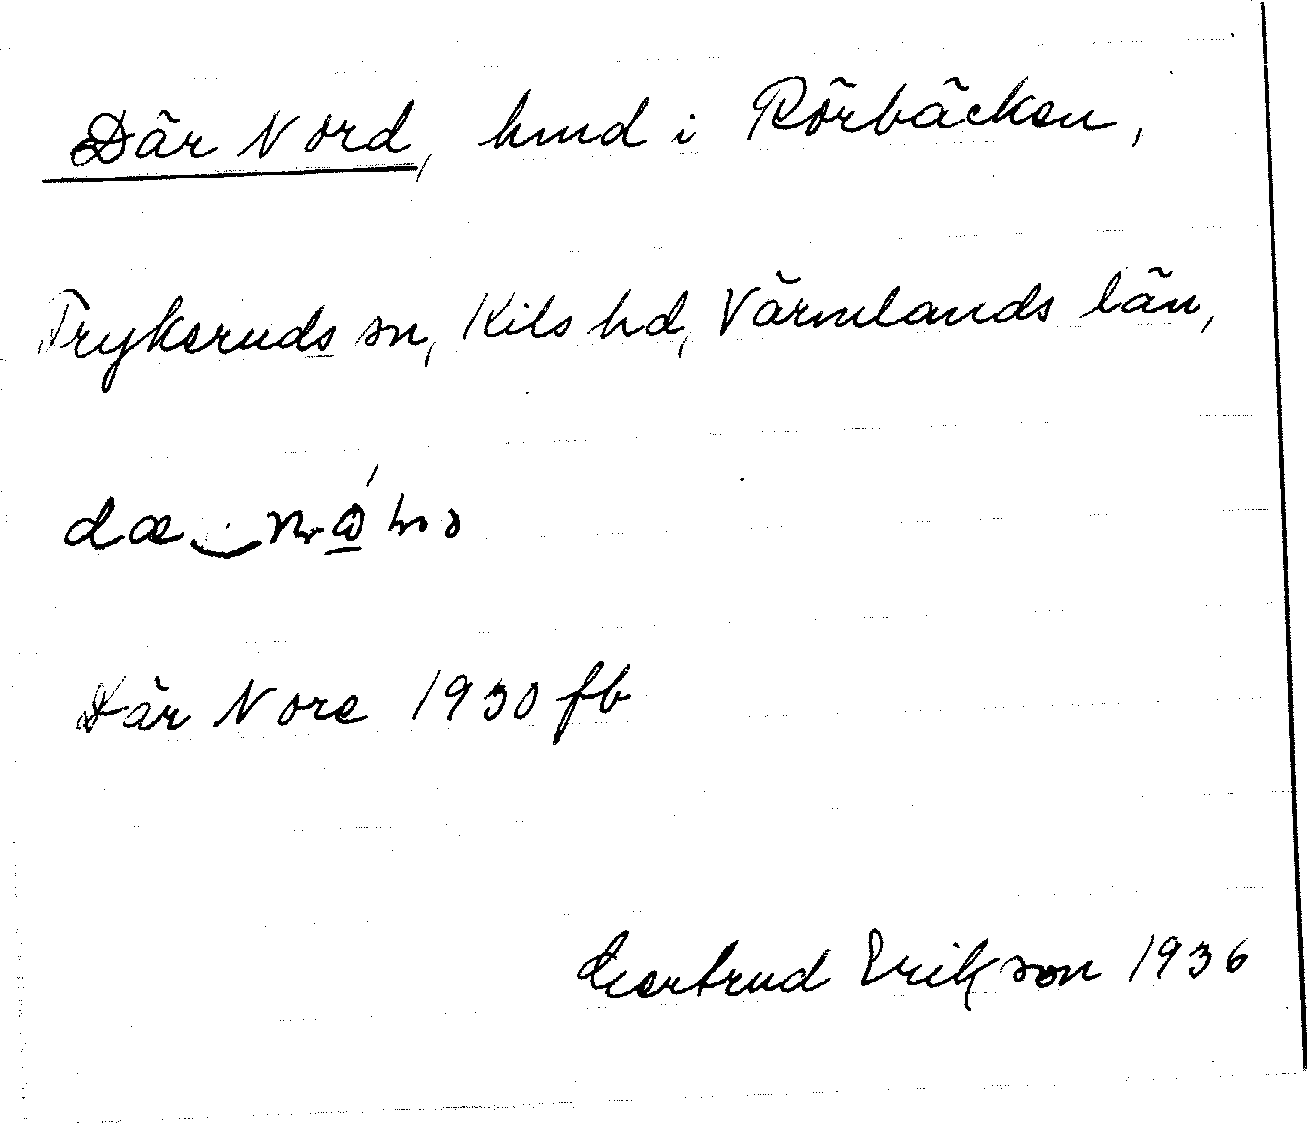 Där Nord, hmd i Rörbäcken,
Frykeruds sn, Kils hd, Värmlands län,
Där Nore 1930 fb
Gertrud Erikson 1936